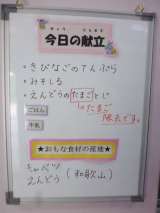 きょう こんだて
今日の献立
・きびなごのてんぷら
・みそしる
・えんどうのたまごとじ
たまご
除去です。
ごはん
牛乳
★おもな食材の産地★
キャベツ
えんどう(和歌山)